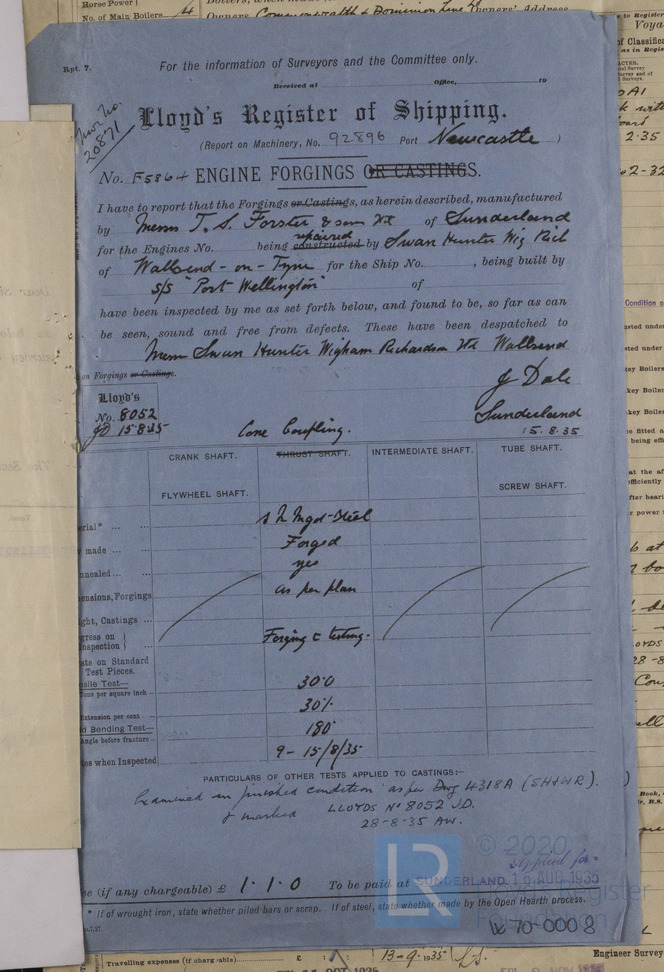 Horse Power
No. of Main Boilers 4
Owners Commonwealth & Dominion Line Ld Owners' Address
Rpt. 7.
For the information of Surveyors and the Committee only.
Received at Office, 19
20871
Lloyd's Register of Shipping.
(Report on Machinery, No. 92896 Port Newcastle)
No. F5864 ENGINE FORGINGS OR CASTINGS.
I have to report that the Forgings or Castings, as herein described, manufactured
by Messrs T. S. Forster & Sons Ltd of Sunderland
repaired
for the Engines No. being constructed by Swan Hunter Wig Rich
of Wallsend-on-Tyne for the Ship No. , being built by
S/S "Port Wellington" of
have been inspected by me as set forth below, and found to be, so far as can
be seen, sound and free from defects. These have been despatched to
Messrs Swan Hunter Wigham Richardson Ltd Wallsend
on Forgings or Castings.
J Dale
Lloyd's
No. 8052
JD 15.8.35
Sunderland
15.8.35
Cone Coupling.
CRANK SHAFT. THRUST SHAFT. INTERMEDIATE SHAFT. TUBE SHAFT.
FLYWHEEL SHAFT. SCREW SHAFT.
erial* ... ... S M Ingot Steel
made ... ... Forged
nnealed... ... yes
ensions, Forgings as per plan
ght, Castings ...
gress on
nspection Forging & testing.
sts on Standard
Test Pieces.
sile Test—
Tons per square inch - 30.0
Extension per cent - 30%
d Bending Test— 180°
Angle before fracture -
tes when Inspected 9 - 15/8/35
PARTICULARS OF OTHER TESTS APPLIED TO CASTINGS:—
Examined in finished condition as per Dwg 4318A (SH&WR).
& marked LLOYDS No 8052 J.D.
28-8-35 AW.
© 2020
Applied for
ee (if any chargeable) £ 1. 1. 0 To be paid at SUNDERLAND. 16 AUG 1935
LR
Register
Foundation
* If of wrought iron, state whether piled bars or scrap. If of steel, state whether made by the Open Hearth process.
W 70-0008
Travelling expenses (if chargeable) £ : : 13-9-1935
Engineer Survey